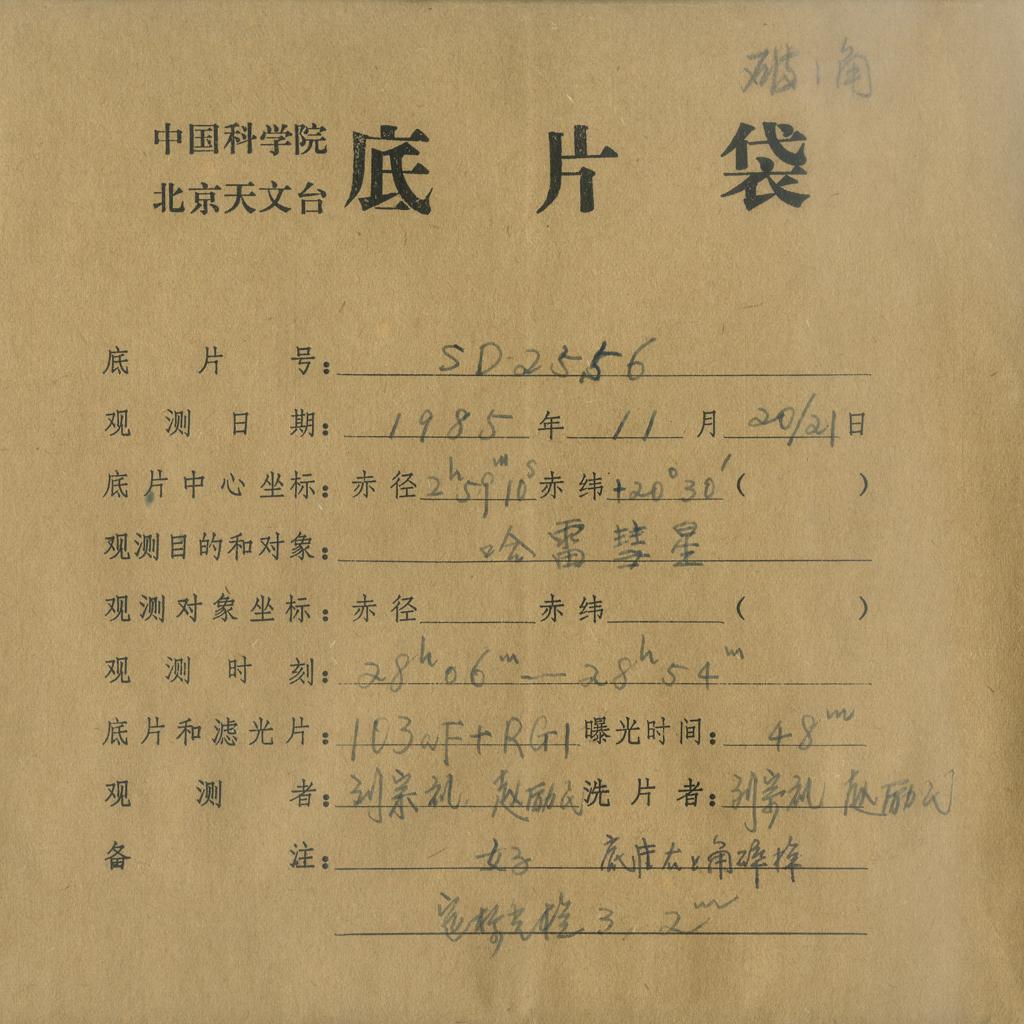 破1角
中国科学院
北京天文台
底片袋
底片号：SD-2556
观测日期：1985年11月20/21日
底片中心坐标：赤径2h59m10s赤纬+20°30′（ ）
观测目的和对象：哈雷彗星
观测对象坐标：赤径 赤纬 （ ）
观测时刻：28h06m—28h54m
底片和滤光片：103aF+RG1曝光时间：48m
观测者：刘宗礼 赵励民洗片者：刘宗礼 赵励民
备注：好 底片左上角碎掉
3 2m